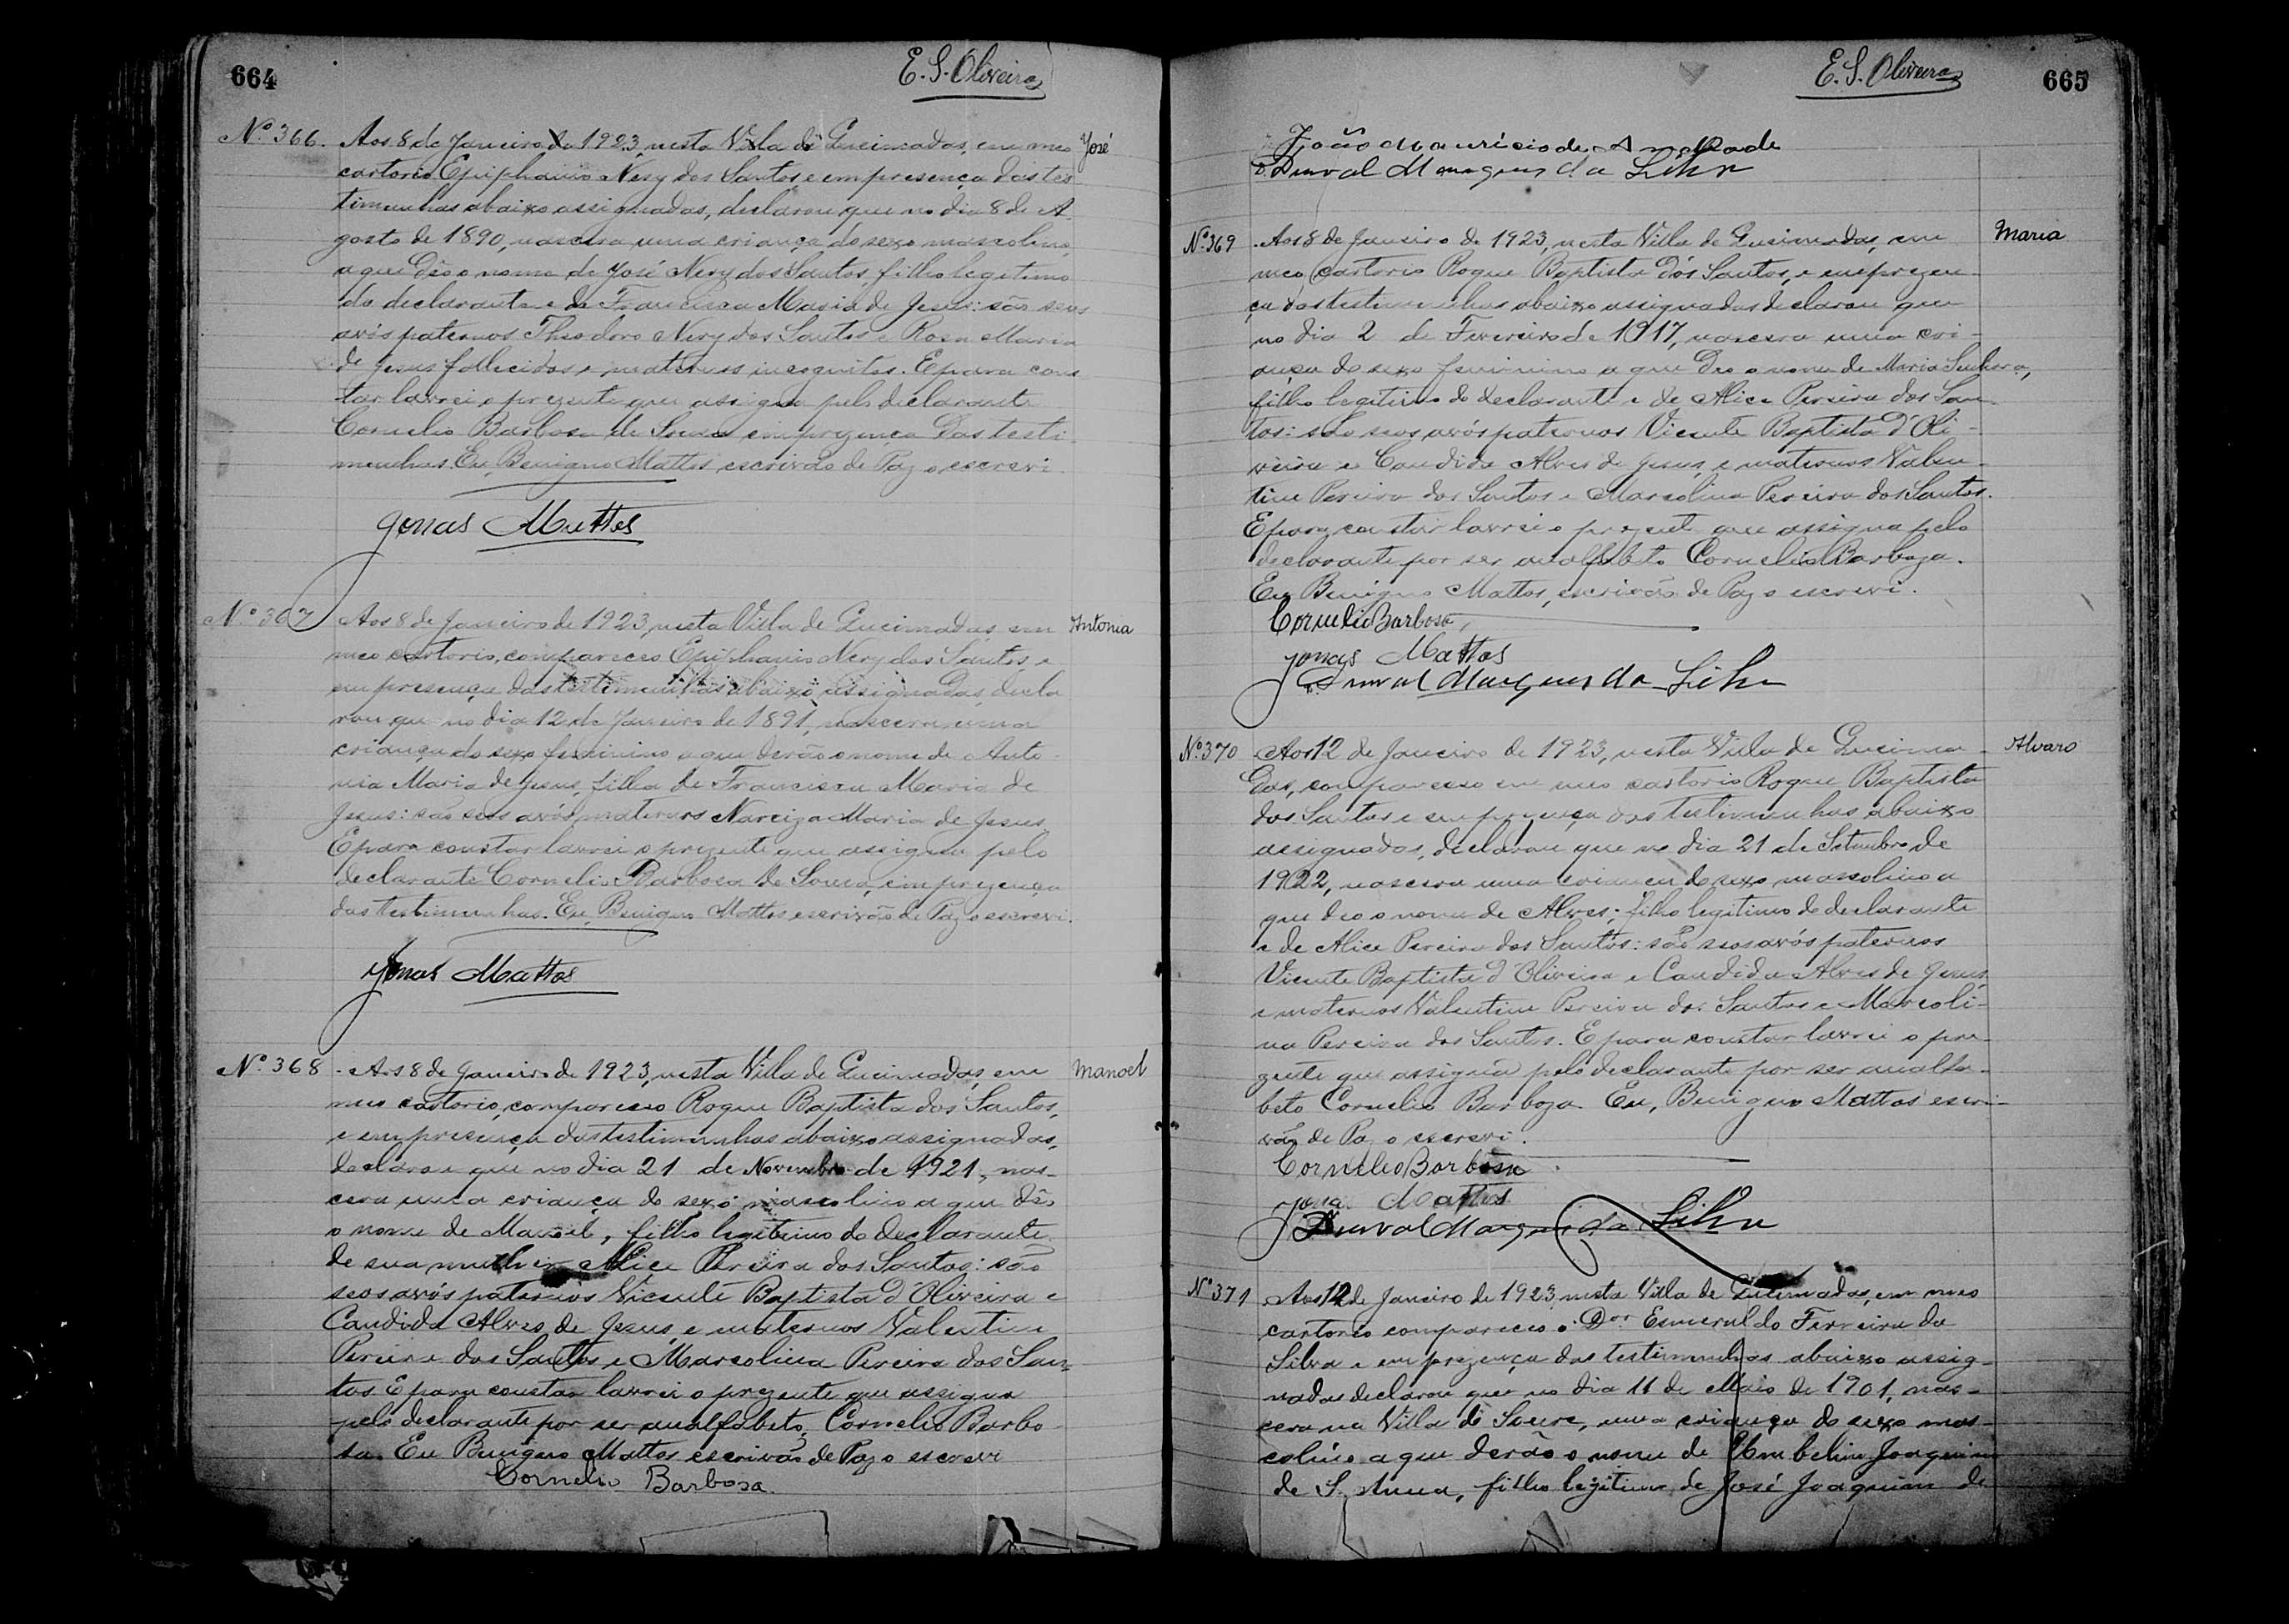 664
E. S. Oliveira
Nº 366. Aos 8 de Janeiro de 1923, nesta Villa de Queimadas, em meo José
cartorio Epiphanio Nery dos Santos e em presença das tes
timunhas abaixo assignadas, declarou que no dia 8 de A
gosto de 1890, nascera uma criança do sexo mascolino,
a que dêo o nome de José Nery dos Santos, filho legitimo
do declarante e de Francisca Maria de Jesus: são seus
avós paternos Theodoro Nery dos Santos e Rosa Maria
de Jesus fallecidos e maternos incognitos. E para cons
tar lavrei o prezente que assigna pelo declarante
Cornelio Barbosa de Souza em prezença das testi
munhas. Eu, Benigno Mattos escrivão de Paz o escrevi
Jonas Mattos
Nº 367 Aos 8 de Janeiro de 1923, nesta Villa de Queimadas, em Antonia
meo cartorio, compareceo Epiphanio Nery dos Santos e
em presença das testimunhas abaixo assignadas, decla
rou que no dia 12 de Janeiro de 1891, nascera uma
criança do sexo feminino a que derão o nome de Anto
nia Maria de Jesus, filha de Francisca Maria de
Jesus: são seos avós maternos Narciza Maria de Jesus
E para constar lavrei o prezente que assigna pelo
declarante Cornelio Barbosa de Souza, em prezença
das testimunhas. Eu, Benigno Mattos escrivão de Paz o escrevi.
Jonas Mattos
Nº 368 - Aos 8 de Janeiro de 1923, nesta Villa de Queimadas, em Manoel
meo cartorio, compareceo Roque Baptista dos Santos,
e em presença das testimunhas abaixo assignadas,
declarou que no dia 21 de Novembro de 1921, nas-
cera uma criança do sexo mascolino a que dêo
o nome de Manoel, filho legitimo do declarante
de sua mulher Alice Pereira dos Santos: são
seos avós paternos Vicente Baptista d'Oliveira e
Candida Alves de Jesus, e maternos Valentim
Pereira dos Santos e Marcolina Pereira dos San-
tos. E para constar lavrei o prezente que assigna
pelo declarante por ser analfabeto, Cornelio Barbo
sa. Eu Benigno Mattos escrivão de Paz o escrevi
Cornelio Barbosa.
E. S. Oliveira
665
João Mauricio de Andrade
Durval Marques da Silva
Nº 369 Aos 8 de Janeiro de 1923, nesta Villa de Queimadas, em Maria
meo cartorio Roque Baptista dos Santos, e em prezen-
ça das testimunhas abaixo assignadas declarou que
no dia 2 de Fevereiro de 1917, nascera uma cri-
ança do sexo feminino a que deo o nome de Maria Senhora,
filha legitima do declarante e de Alice Pereira dos San-
tos: são seos avós paternos Vicente Baptista d'Oli-
veira e Candida Alves de Jesus, e maternos Valen-
tim Pereira dos Santos e Marcolina Pereira dos Santos.
E para constar lavrei o prezente que assigna pelo
declarante por ser analfabeto Cornelio Barboza.
Eu Benigno Mattos, escrivão de Paz o escrevi.
Cornelio Barbosa,
Jonas Mattos
Durval Marques da Silva
Nº 370 Aos 12 de Janeiro de 1923, nesta Villa de Queima- Alvaro
das, compareceo em meo cartorio Roque Baptista
dos Santos e em prezença das testimunhas abaixo
assignadas, declarou que no dia 21 de Setembro de
1922, nascera uma criança do sexo mascolino a
que deo o nome de Alvaro; filho legitimo do declarante
e de Alice Pereira dos Santos: são seos avós paternos
Vicente Baptista d'Oliveira e Candida Alves de Jesus,
e maternos Valentim Pereira dos Santos e Marcoli-
na Pereira dos Santos. E para constar lavrei o pre-
zente que assigna pelo declarante por ser analfa-
beto Cornelio Barboza. Eu, Benigno Mattos escri-
vão de Paz o escrevi.
Cornelio Barbosa
Jonas Mattos
Durval Marques da Silva
Nº 371 Aos 12 de Janeiro de 1923 nesta Villa de Queimadas, em meo
cartorio compareceo o Dor. Esmeraldo Ferreira da
Silva e em prezença das testimunhas abaixo assig-
nadas declarou que no dia 11 de Maio de 1901, nas-
cera na Villa de Soure, uma criança do sexo mas-
colino a que derão o nome de Umbelino Joaquim
de S. Anna, filho legitimo de José Joaquim de